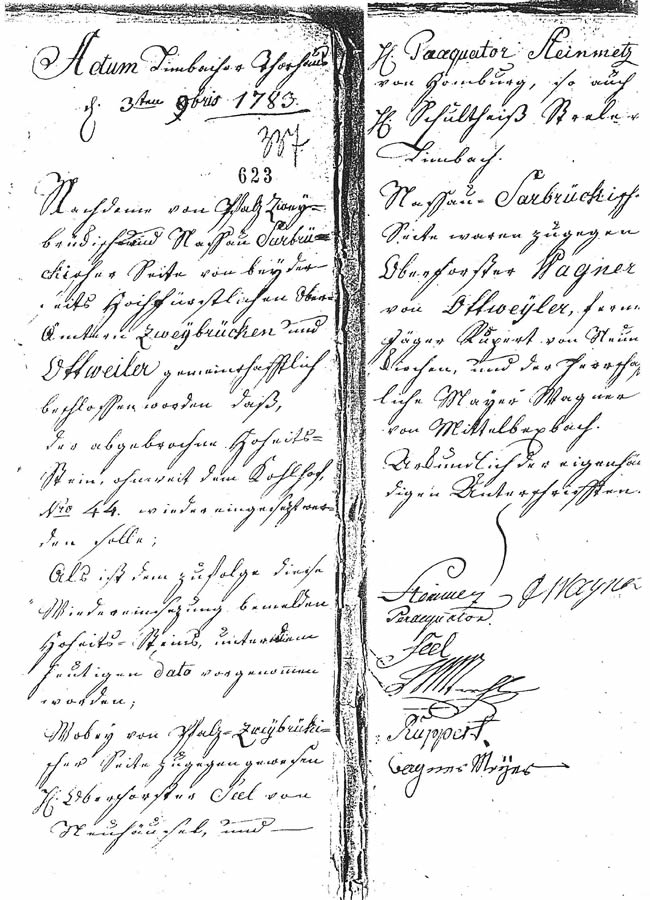 Actum Limbacher Thorhaus
d. 3ten 9bris 1783.
623
Nachdeme von Pfalz Zwey-
brückisch und Nassau Sarbrü-
ckischer Seite von beyder
seits Hochfürstlichen Ober-
Ämtern Zweybrücken und
Ottweiler gemeinschafftlich
beschlossen worden daß,
der abgebrochne Hoheits-
Stein, ohnweit dem Kohlhof,
Nro 44. wieder eingesetzt wer-
den solle;
Als ist dem zufolge diese
Wiedereinsezung bemelden
Hoheits-Steins, unter dem
heutigen dato vorgenommen
worden;
Wobey von Pfalz-Zweybrücki-
scher Seite zugegen gewesen
H. Oberforster Seel von
Neuhäusel, und
H. Peraequator Steinmetz
von Homburg, so auch
H. Schultheiß Steele
Limbach.
Nassau-Sarbrückisch-
Seite waren zugegen
Oberforster Wagner
von Ottweyler, fern
Jäger Rupert von Neun
kirchen, und der Herrscha
liche Mayer Wagner
von Mittelbexbach.
Urkundlich der eigenhän
digen Unterschrifften.
Steinmez CWagner
Peraequator.
Seel
Ruppert,
Wagner Meyer